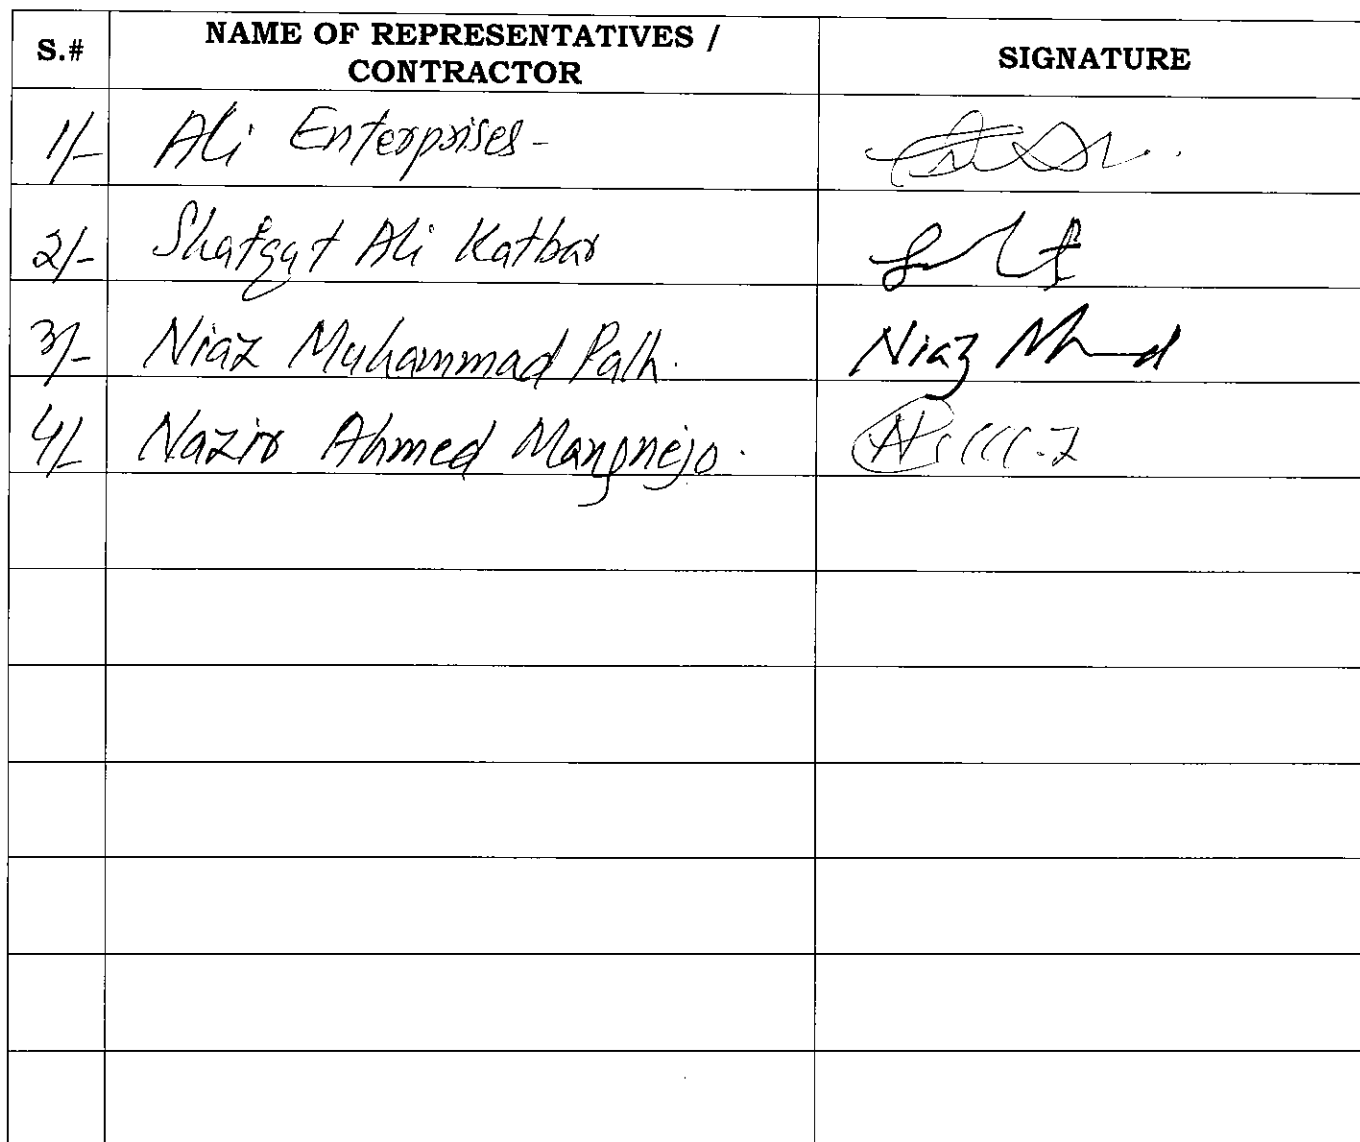 S.# NAME OF REPRESENTATIVES / CONTRACTOR SIGNATURE
1/- Ali Enterprises-
2/- Shafqat Ali Katbar
3/- Niaz Muhammad Palh. Niaz
4/- Nazir Ahmed Mangnejo.